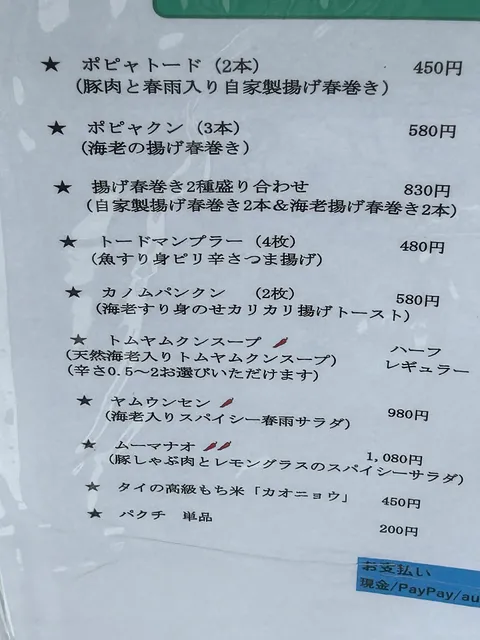 ★ ポピャトード（2本） 450円
（豚肉と春雨入り自家製揚げ春巻き）
★ ポピャクン（3本） 580円
（海老の揚げ春巻き）
★ 揚げ春巻き2種盛り合わせ 830円
（自家製揚げ春巻き2本&海老揚げ春巻き2本）
★ トードマンプラー（4枚） 480円
（魚すり身ピリ辛さつま揚げ）
★ カノムパンクン （2枚） 580円
（海老すり身のせカリカリ揚げトースト）
★ トムヤムクンスープ ハーフ
（天然海老入りトムヤムクンスープ） レギュラー
（辛さ0.5〜2お選びいただけます）
★ ヤムウンセン 980円
（海老入りスパイシー春雨サラダ）
★ ムーマナオ 1,080円
（豚しゃぶ肉とレモングラスのスパイシーサラダ）
★ タイの高級もち米「カオニョウ」 450円
★ パクチ 単品 200円
お支払い
現金/PayPay/au